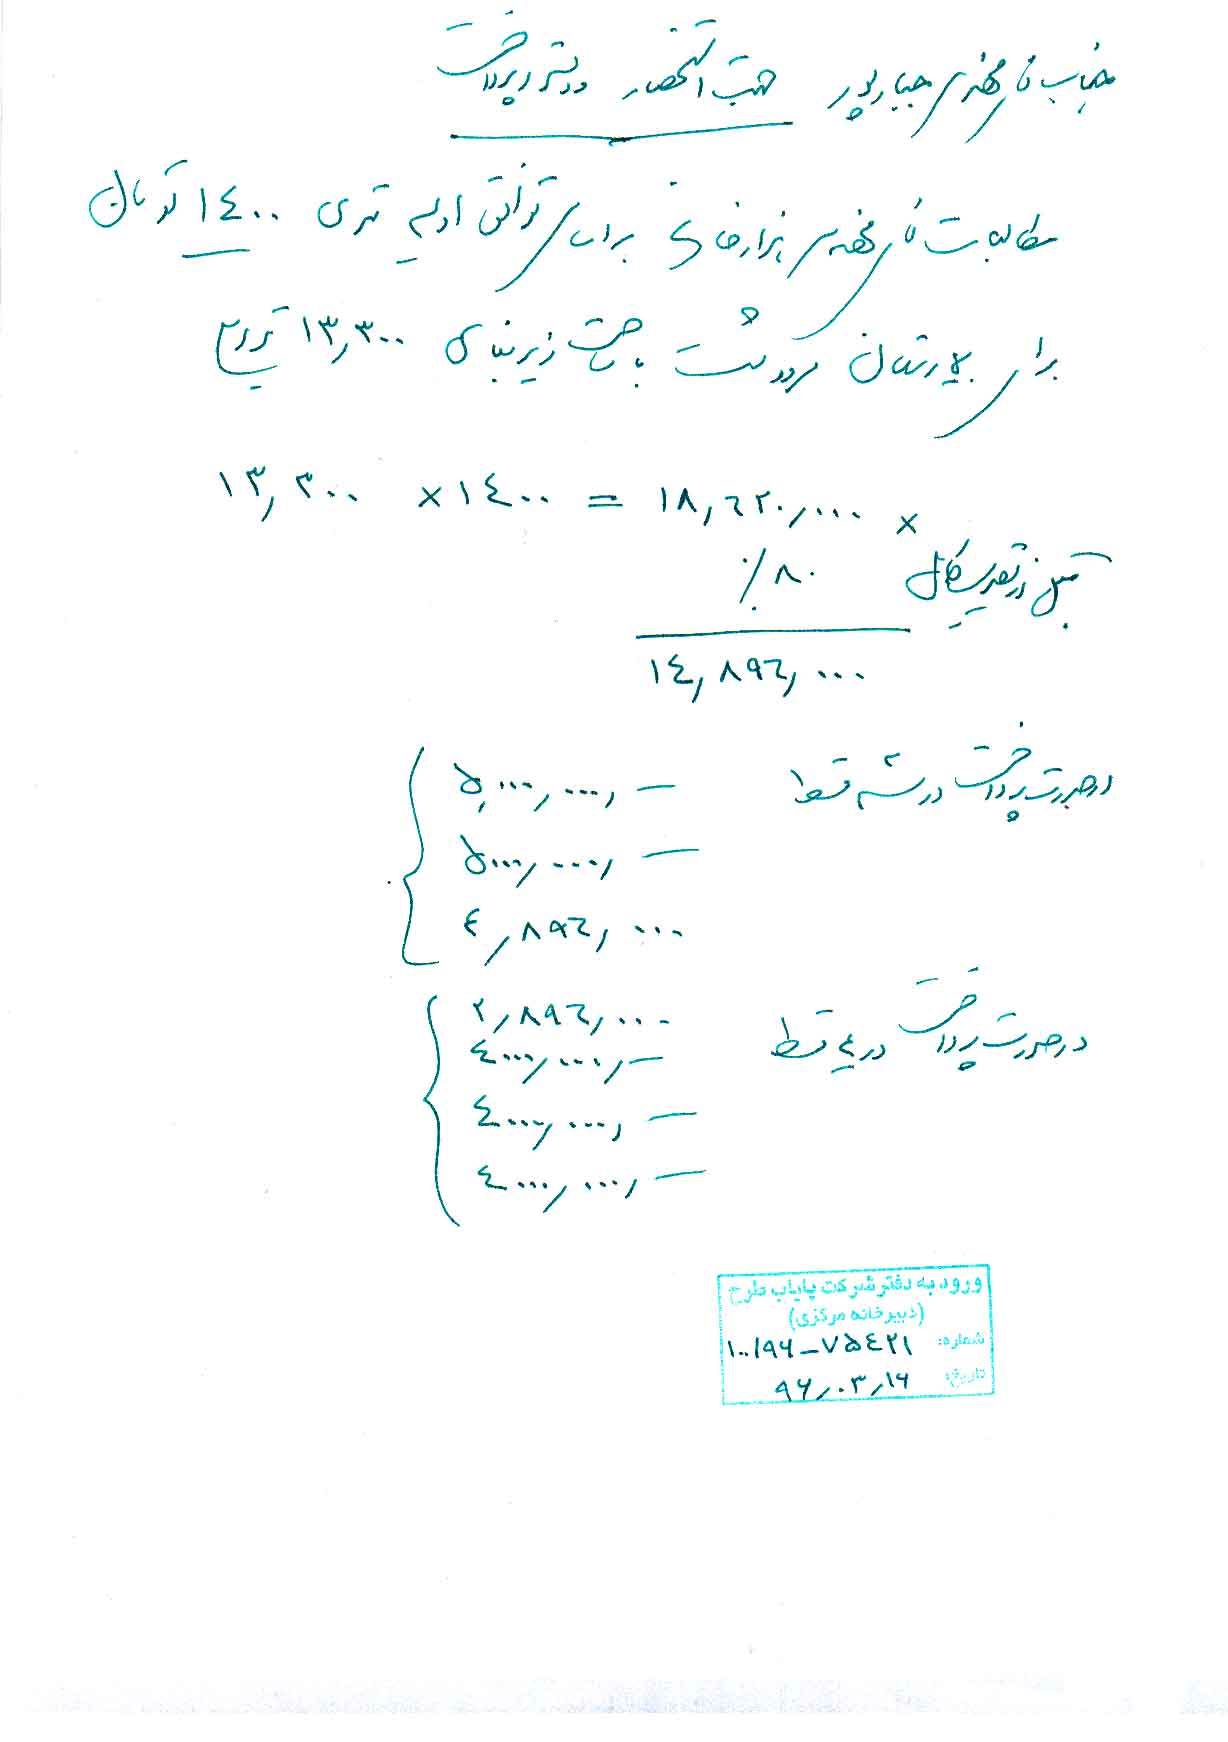 جناب آقای مهندس جبارپور جهت استحضار و دستور پرداخت
مطالبات آقای مهندس هزارخانی براساس توافق اولیه متری ۱٤۰۰ تومان
برای بیمارستان مرودشت با مساحت زیربنای ۱۳,۳۰۰ مترمربع
۱۳,۳۰۰ × ۱٤۰۰ = ۱۸,٦۲۰,۰۰۰ ×
٪۸۰
۱٤,۸۹٦,۰۰۰
در صورت پرداخت در سه قسط
۵,۰۰۰,۰۰۰, —
۵۰۰۰,۰۰۰, —
٤,۸۹٦,۰۰۰
در صورت پرداخت در ٤ قسط
۲,۸۹٦,۰۰۰
٤۰۰۰,۰۰۰, —
٤۰۰۰,۰۰۰, —
٤۰۰۰,۰۰۰, —
ورود به دفتر شرکت پایاب طرح
(دبیرخانه مرکزی)
شماره: ۱۰۰/۹۶-۷۵٤۲۱
تاریخ: ۹۶,۰۳,۱۶